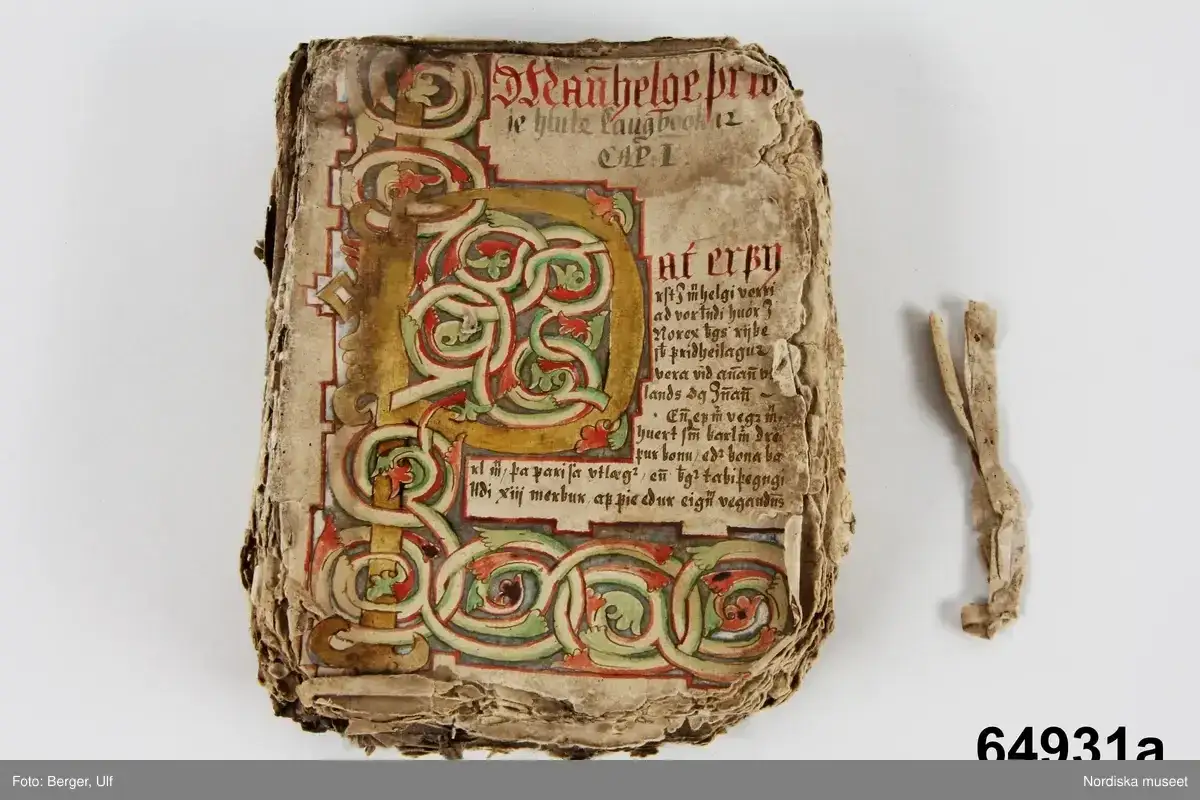 Mañhelge þrid
ie hlute Laugbookar
CAP. I
Þ
at er þy
rst J m̃helgi vorri
ad vor landi huor J
Norex kͥgs rijke
vera vid añañ
lands og Jñañ
Eñ ef m̃ vegr m̃
huert sm̃ karlm̃ dre
pur konu, edr kona ka
rl m̃, þa fari sa vtlægr, eñ kͥgr taki þegngi
lldi xiij merkur, af fie edur eign vegandañs
64931a
Foto: Berger, Ulf
Nordiska museet